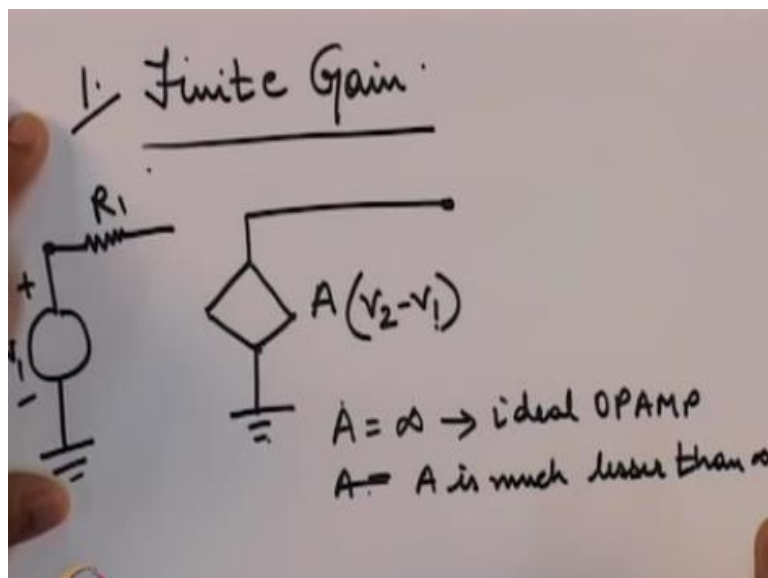 1. Finite Gain
R1
+
A(v2-v1)
-
A = ∞ → ideal OPAMP
A= A is much lesser than ∞